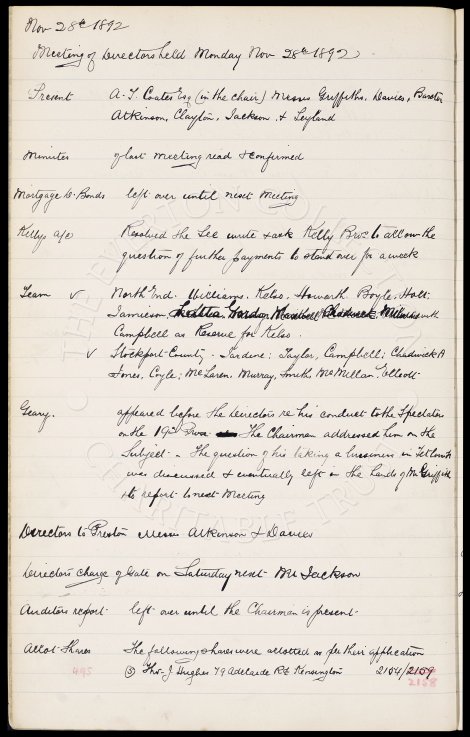 Nov 28th 1892
Meeting of Directors held Monday Nov 28th 1892
Present A. T. Coates Esq (in the chair) Messrs Griffiths, Davies, Baxter
Atkinson, Clayton, Jackson, & Leyland
Minutes of last meeting read & confirmed
Mortgage & Bonds left over until next meeting
Kellys a/c Resolved the Sec write & ask Kelly Bros to allow the
question of further payments to stand over for a week
Team v North End. Williams, Kelso, Howarth, Boyle, Holt.
Jamieson, Latta, Gordon, Maxwell, Chadwick, Milward with
Campbell as Reserve for Kelso.
v Stockport County - Jardine: Taylor, Campbell; Chadwick A
Jones, Coyle; McLaren, Murray, Smith, McMillan, Elliott
Geary. appeared before the Directors re his conduct to the Spectators
on the 19th The Chairman addressed him on the
Subject. - The question of his taking a business in
was discussed & eventually left in the hands of Mr Griffiths
to report to next Meeting
Directors to Preston Messrs Atkinson & Davies
Directors Charge of Gate on Saturday next Mr Jackson
Auditors report left over until the Chairman is present
Allot Shares The following shares were allotted as per their application
495 (5) Thos. J Hughes 79 Adelaide Rd Kensington 2154/2159
2158
THE EVERTON COLLECTION
CHARITABLE TRUST